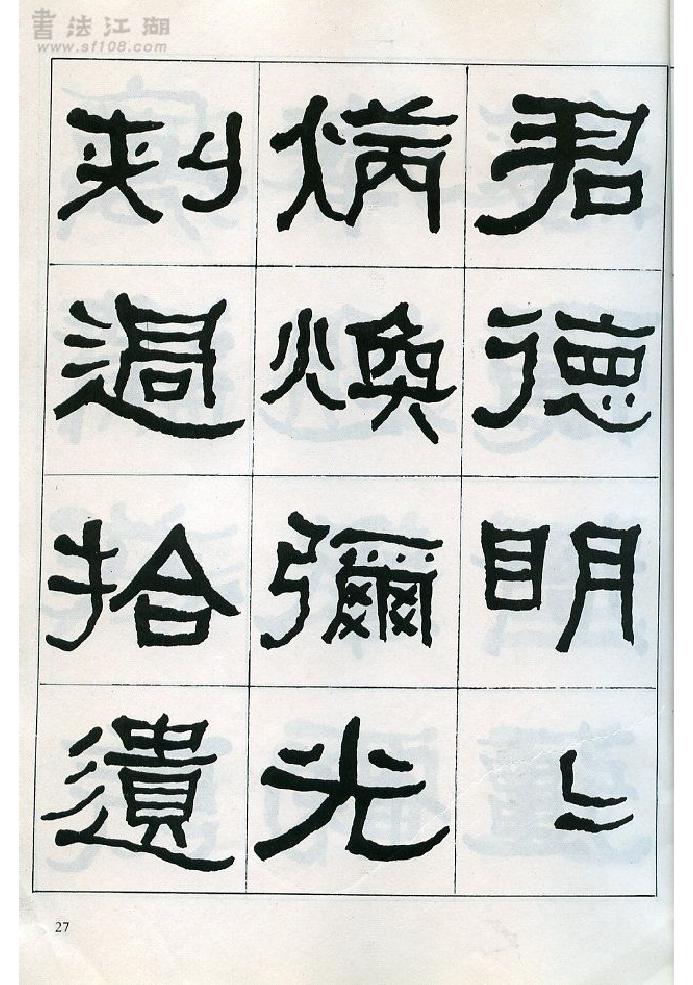 書法江湖
www.sf108.com
君德明〻
炳煥彌光
刾過拾遺
27